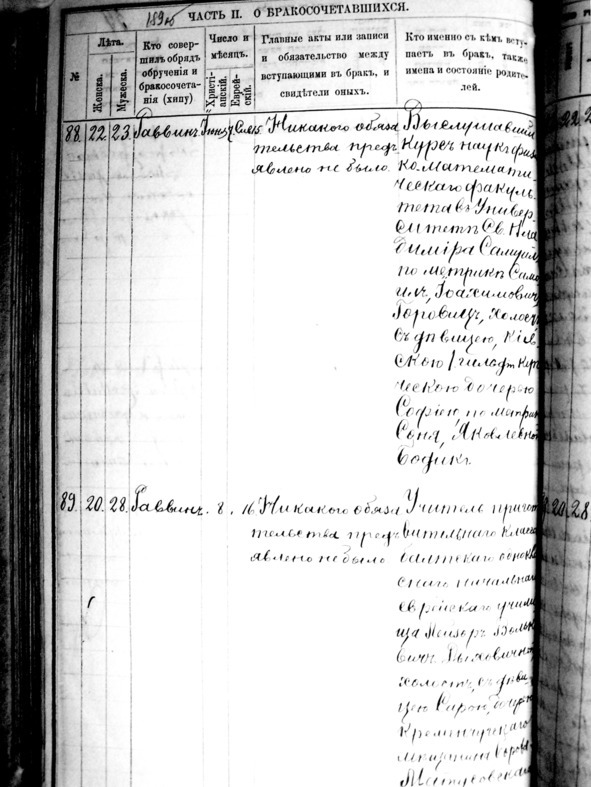 ЧАСТЬ II. О БРАКОСОЧЕТАВШИХСЯ.
№
Лѣта.
Женска.
Мужеска.
Кто совер-
шилъ обрядъ
обрученія и
бракосочета-
нія (хипу)
Число и
мѣсяцъ.
Христі-
анскій.
Еврей-
скій.
Главные акты или записи
и обязательство между
вступающими въ бракъ, и
свидѣтели оныхъ.
Кто именно съ кѣмъ всту-
паетъ въ бракъ, также
имена и состояніе родите-
лей.
88. 22. 23. Раввинъ
Никакого обяза
тельства предъ
явлено не было.
Выслушавшій
Курсъ наукъ физи
ко математи-
ческаго факуль-
тета въ Универ-
ситетѣ Св. Вла
диміра Самуилъ
по метрикѣ Само
илъ, Іоахимовичъ
Горовицъ, холостъ
съ дѣвицею, Кіев-
скою
ческою дочерею
Софіею по метрик
Соня, Яковлевной
Бодикъ.
89. 20. 28. Раввинъ. 8. 16
Никакого обяза
тельства предъ
явлено не было
Учитель пригот
вительнаго класса
балтскаго
скаго начальнаго
еврейскаго учили
ща Лейзеръ Воль
вичъ
холостъ, съ дѣви
цею
Кременчугскаго